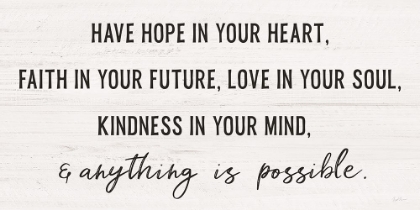 HAVE HOPE IN YOUR HEART,
FAITH IN YOUR FUTURE, LOVE IN YOUR SOUL,
KINDNESS IN YOUR MIND,
& anything is possible.